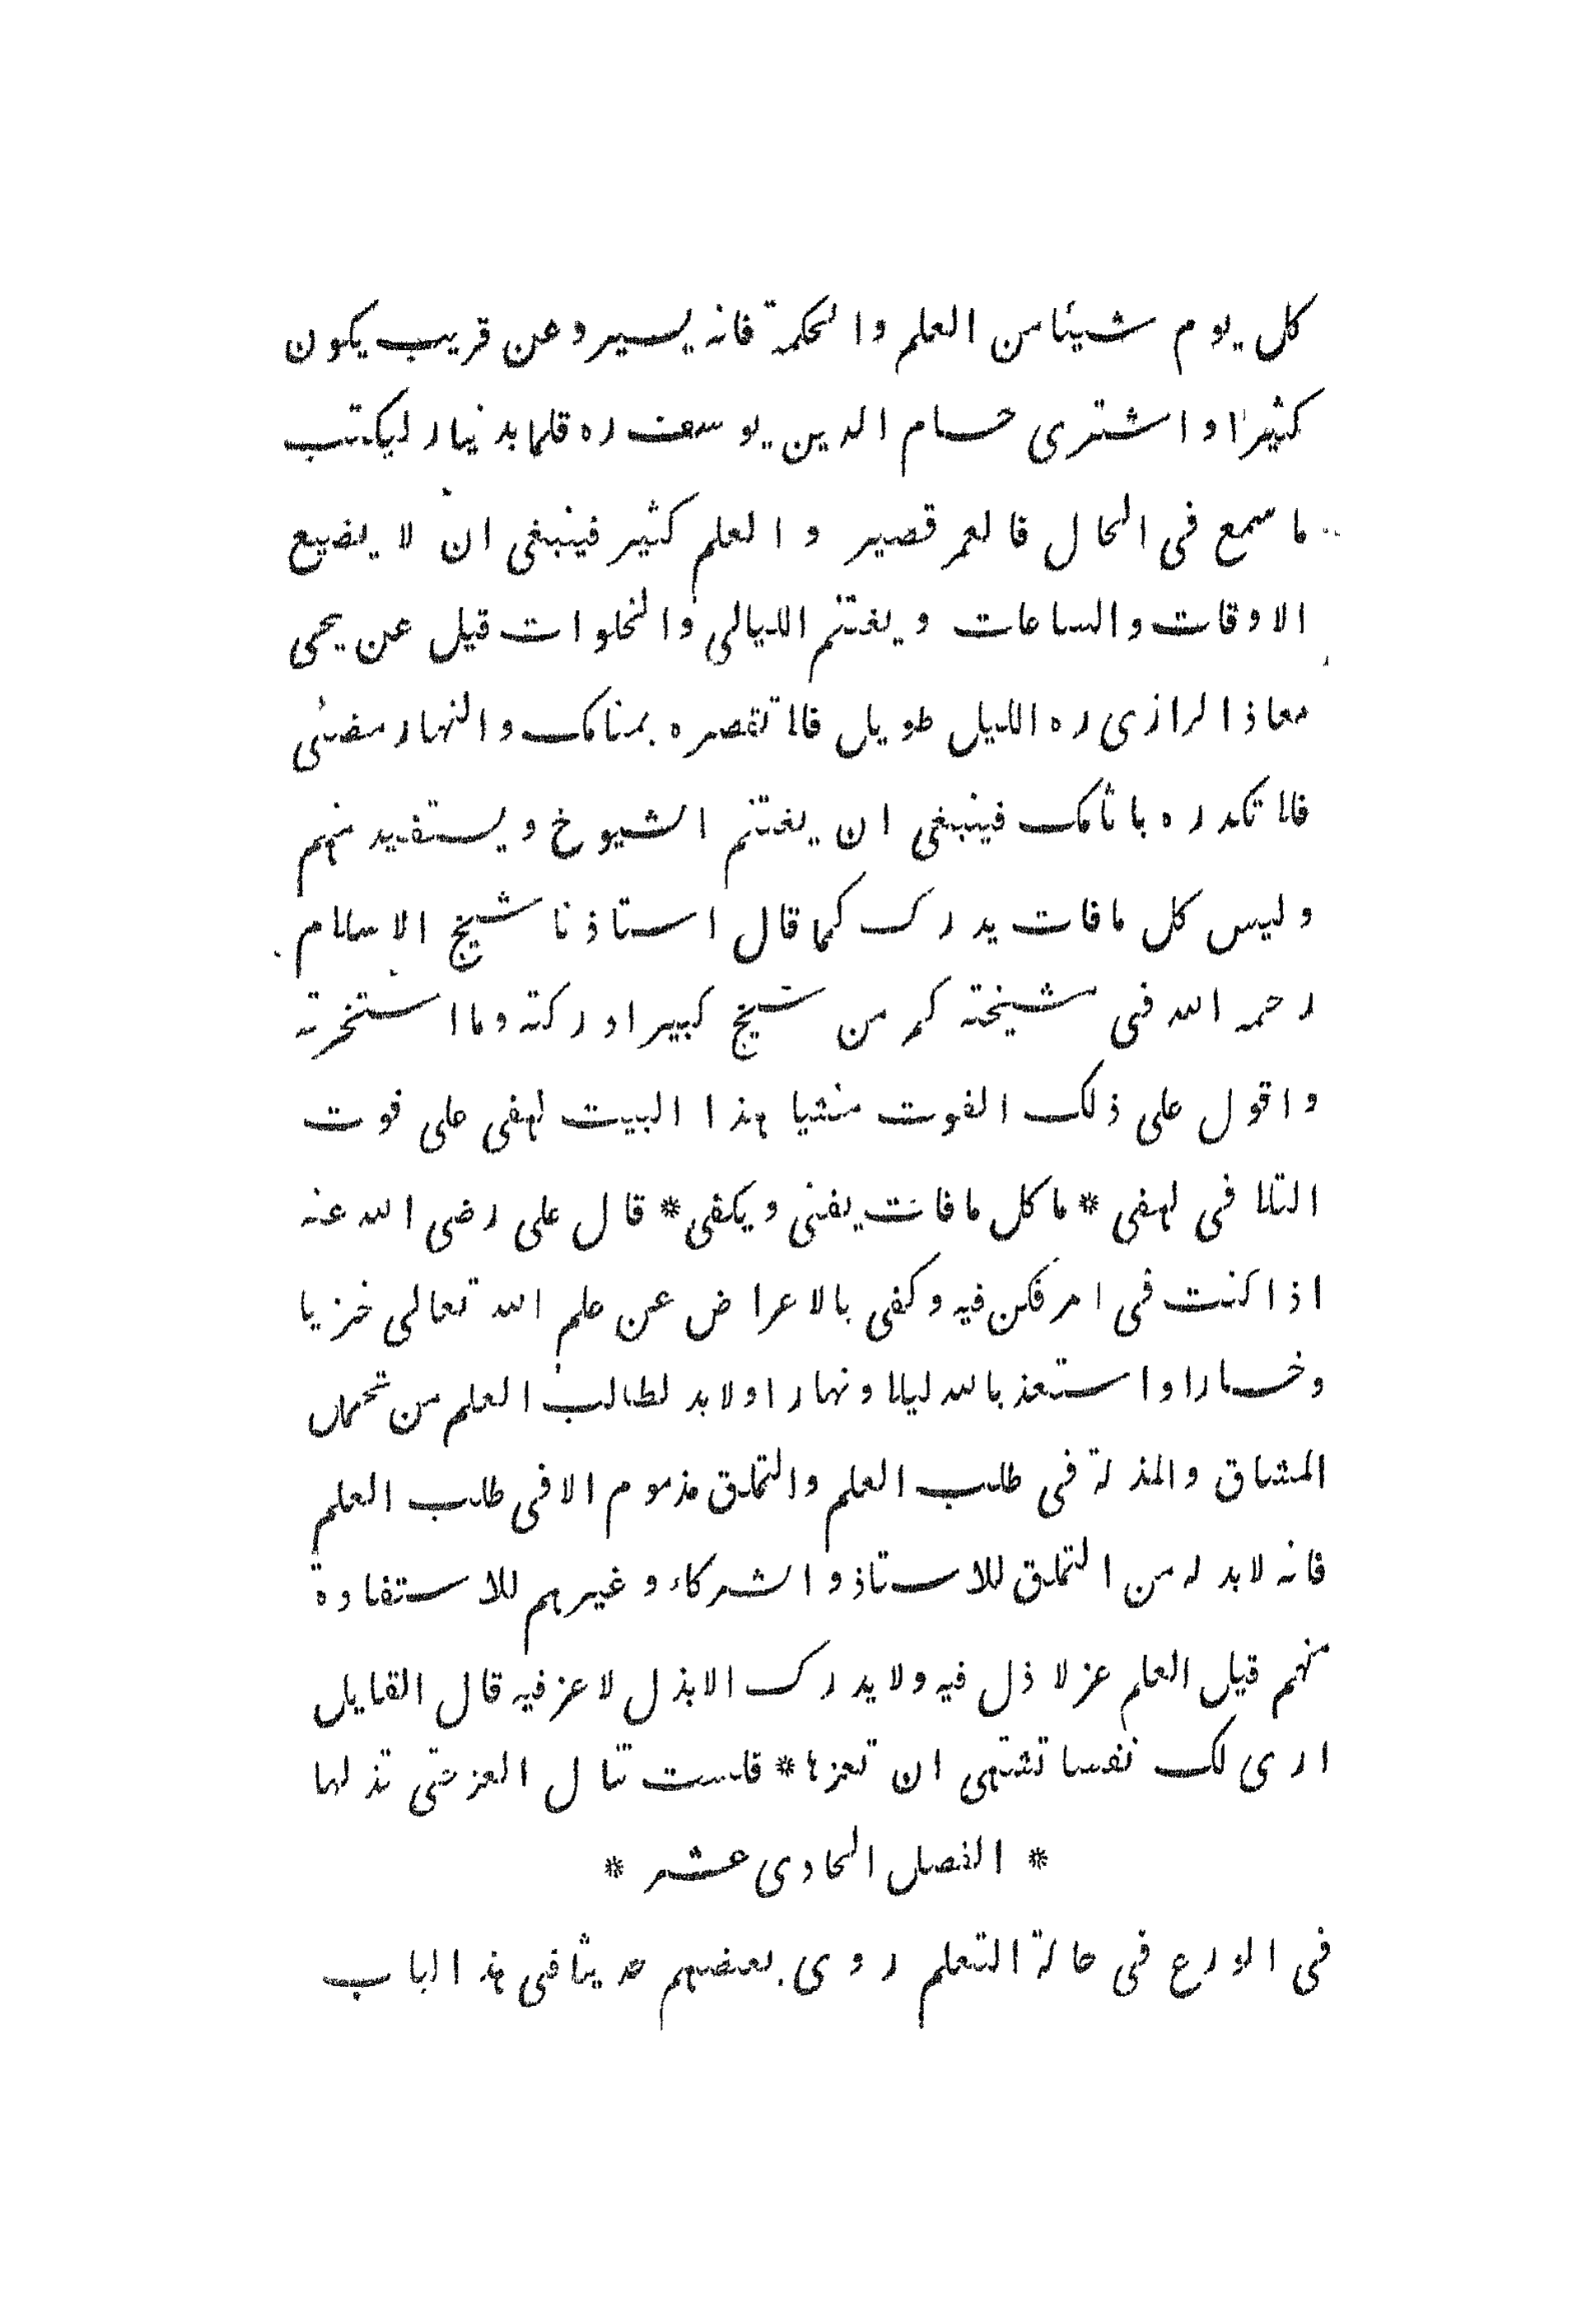 كل يوم شيئا من العلم والحكمة فانه يسير وعن قريب يكون
كثيرا واشترى حسام الدين يوسف ره قلما بدينار ليكتب
ما سمع في الحال فالعمر قصير والعلم كثير فينبغى ان لا يضيع
الاوقات والساعات ويغتنم الليالى والخلوات قيل عن يحيى
معاذ الرازى ره الليل طويل فلا تقصره بمنامك والنهار مضئى
فلا تكدره باثامك فينبغى ان يغتنم الشيوخ ويستفيد منهم
وليس كل ما فات يدرك كما قال استاذنا شيخ الاسلام
رحمه الله فى مشيخته كم من شيخ كبير ادركته وما استخرته
واقول على ذلك الفوت منشيا هذا البيت لهفى على فوت
التلا فى لهفى * ما كل ما فات يفنى ويكفى * قال على رضى الله عنه
اذا كنت فى امر فكن فيه وكفى بالاعراض عن علم الله تعالى خزيا
وخسارا واستعذ بالله ليلا ونهارا ولابد لطالب العلم من تحمل
المشاق والمذلة فى طلب العلم والتملق مذموم الا فى طلب العلم
فانه لابد له من التملق للاستاذ والشركاء وغيرهم للاستفادة
منهم قيل العلم عز لا ذل فيه ولا يدرك الا بذل لا عز فيه قال القايل
ارى لك نفسا تشتهى ان تعزها * فلست تنال العز حتى تذلها
* الفصل الحادى عشر *
فى الورع فى حالة التعلم روى بعضهم حديثا فى هذا الباب